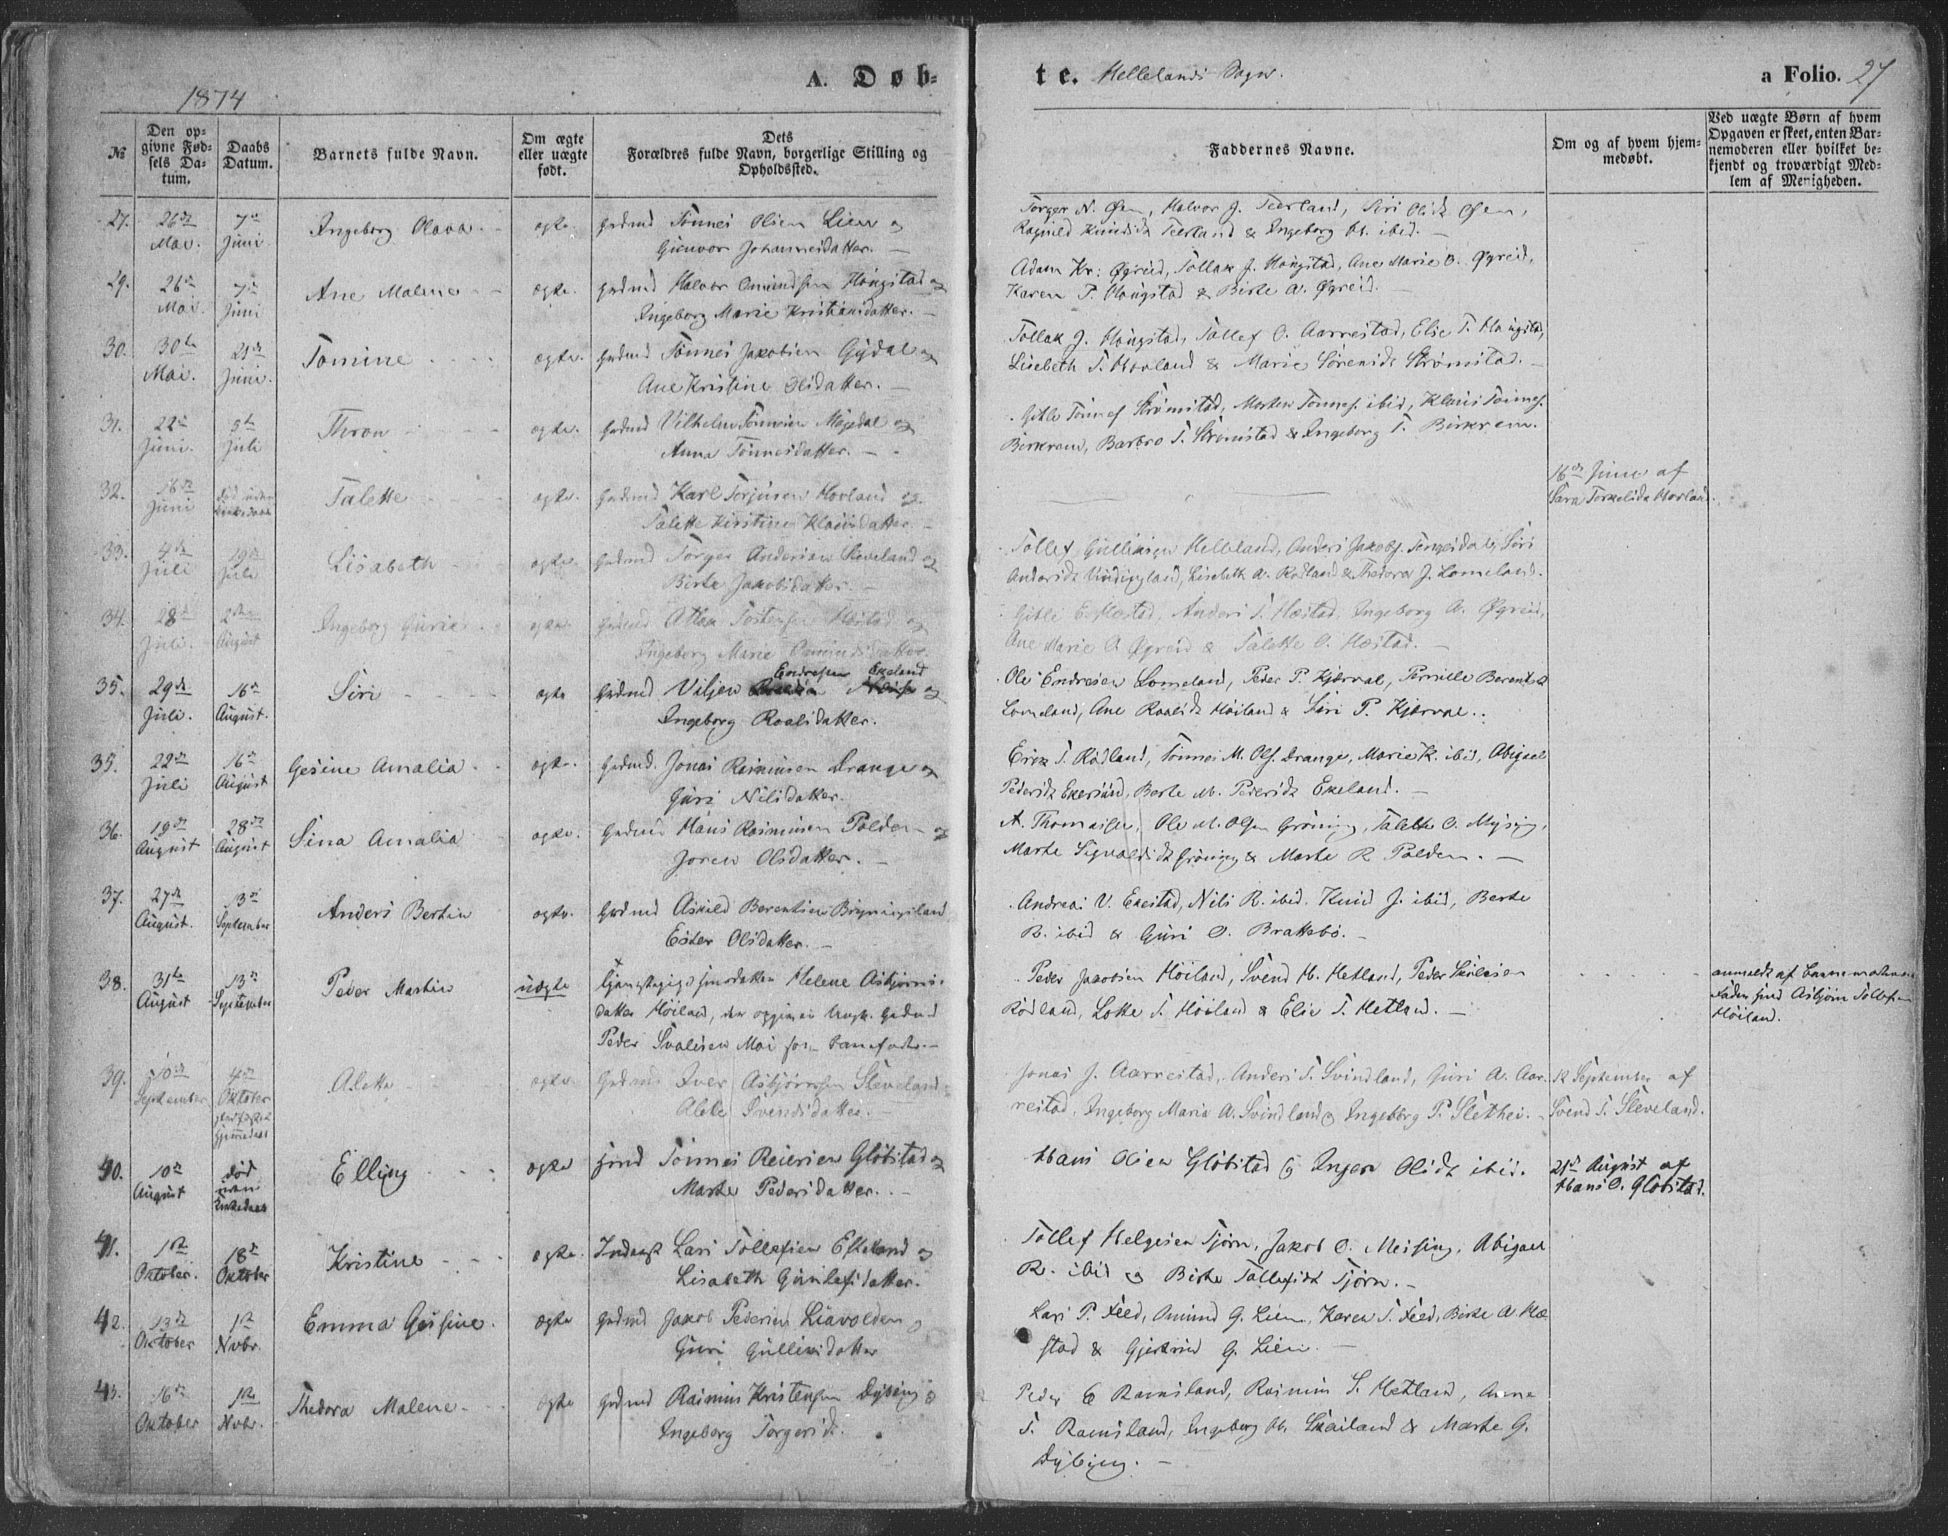 1874
A. Døb-
te. Hellelands Sogn.
a Folio. 27
№
Den op-
givne Fød-
sels Da-
tum.
Daabs
Datum.
Barnets fulde Navn.
Om ægte
eller uægte
født.
Dets
Forældres fulde Navn, borgerlige Stilling og
Opholdssted.
Faddernes Navne.
Om og af hvem hjem-
medøbt.
Ved uægte Børn af hvem
Opgaven er skeet, enten Bar-
nemoderen eller hvilket be-
kjendt og troværdigt Med-
lem af Menigheden.
27. 26de Mai. 7de Juni Ingeborg Olava ægte. Gadmd Tönnes Olsen Lien og
Gunvor Johannesdatter.
Torger N. Øen, Halvor J. Teerland, Siri Olsdt Øen,
Ragnild Knudsdt Teerland & Ingeborg M. ibid.
29. 26de Mai. 7de Juni Ane Malene ægte. Gadmd Halvor Omundsen Houngstad og
Ingeborg Marie Kristiansdatter.
Adam Kr: Øgreid, Tollak J. Houngstad, Ane Marie O. Øgreid,
Karen T. Houngstad & Birte A. Øgreid.
30. 30te Mai. 21de Juni. Tomine ægte. Gadmd Tönnes Jakobsen Gydal og
Ane Kristine Olsdatter.
Tollak J. Houngstad, Tollef O. Aarrestad, Elie T. Houngstad,
Lisebeth T. Hovland & Marie Sörensdt Strömstad.
31. 22de Juni. 5te Juli Thron ægte. Gadmd Vilhelm Tönnesen Mögedal og
Anna Tönnesdatter.
Gitle Tönnes. Strömstad, Morten Tönnes. ibid, Klaus Tönnes.
Birkrem, Barbro T. Strömstad & Ingeborg T. Birkrem.
32. 16de Juni død uden Talette ægte. Gadmd Karl Torjusen Hovland og
Talette Kirstine Klausdatter.
16de Juni af
Sara Torkelsdt Hovland.
33. 4de Juli 19de Juli Lisabeth ægte. Gadmd Torger Andersen Steveland og
Birte Jakobsdatter.
Tollef Gulliksen Helleland, Anders Jakobs. Tengesdal, Siri
Andersdt, Lisebeth A. Rödland & Thedora J. Lomeland.
34. 28de Juli. 2den August Ingeborg Gurie ægte. Gadmd Atlak Tostensen Hæstad og
Ingeborg Marie Omundsdatter.
Gitle E. Hæstad, Anders T. Hæstad, Ingeborg A. Øgreid,
Ane Marie A Øgreid & Talette O. Hæstad.
Endresen Ekeland
35. 29de Juli. 16de August. Siri ægte Gadmd Viljen og
Ingeborg Roalsdatter.
Ole Endresen Lomeland, Peder P. Kjærval, Pernille Berentsd.
Lomeland, Ane Roalsdt Höiland & Siri P. Kjærval.
35. 22de Juli 16de August Gesine Amalia ægte. Gadmd. Jonas Rasmusen Drange og
Guri Nilsdatter.
Erik T. Rödland, Tönnes M. Ols. Drange, Marie K. ibid, Abigael
Pedersdt Ekersund, Berte M. Pedersdt Ekeland.
36. 19de August 28de August Sina Amalia ægte. Gadmd Hans Rasmusen Polden og
Joren Olsdatter.
A. Thomassen, Ole M. Olsen Gröning, Talette O. Mysing,
Marte Sigvaldsdt Gröning & Marte R Polden.
37. 27de August. 3de September Anders Bertin ægte. Gadmd Askild Berentsen Bryningsland,
Ester Olsdatter.
Andreas V. Eikestad, Nils R. ibid. Knud J. ibid, Berte
R. ibid & Guri O. Brattebö.
38. 31te August 13de September Peder Martin uægte Helene Asbjørns-
datter Höiland, der opgiver
Peder Svalesen Moi
Peder Jacobsen Höiland, Svend H. Hetland, Peder Skulesen
Rödland, Lotte T. Höiland & Elie T. Hetland.
anmeldt af Barnemoderens
Fader Asbjörn Tollefsen
Höiland.
39. 10de September 4de Oktober Hjemmedøbt Alette ægte Gadmd Iver Asbjörnsen Steveland
Alete Svendsdatter.
Jonas J. Aarrestad, Anders T. Svindland, Guri A. Aar-
restad, Ingeborg Marie A. Svindland & Ingeborg P. Slethei.
12 September af
Svend T. Steveland.
40. 10de August død uden Kirkedaab Elling ægte Tönnes Reiersen Glöbstad og
Marte Pedersdatter.
Hans Olsen Glöbstad og Inger Olsdt ibid.
21de August af
Hans O. Globstad.
41. 1ste Oktober. 18de Oktober Kristine ægte. Inderst Lars Tollefsen Eskeland og
Lisabeth Gunlefsdatter.
Tollef Helgesen Tjörn, Jakob O. Meising, Abigael
R. ibid og Birte Tollefsdt Tjörn.
42. 13de Oktober 1ste Novbr. Emma Gurine. ægte Gadmd Jakob Pedersen Liavolden og
Guri Gulliksdatter
Lars P. Feed, Omund G. Lien, Karen T. Feed, Birte A Hæ-
stad & Gjertrud G. Lien.
43. 16de Oktober 1ste Novbr. Thedora Malene. ægte Gadmd Rasmus Kristensen Dybing &
Ingeborg Torgersdt.
Peder E Ramsland, Rasmus S. Hetland, Anne
T. Ramsland, Ingeborg M. Skailand & Marte G.
Dybing.